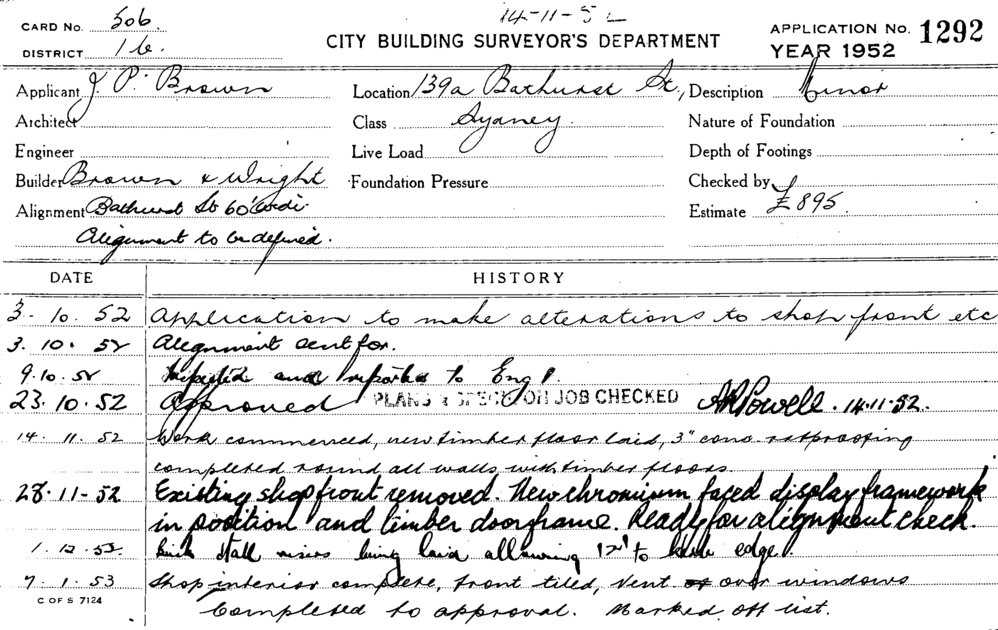 14-11-52
CARD No. 506.
DISTRICT 16.
CITY BUILDING SURVEYOR'S DEPARTMENT
APPLICATION No. 1292
YEAR 1952
Applicant J. P. Brown
Location 139a Bathurst St.,
Description Minor
Architect
Class Sydney.
Nature of Foundation
Engineer
Live Load
Depth of Footings
Builder Brown & Wright
Foundation Pressure
Checked by
Alignment Bathurst St 60'
Estimate £895.
Alignment to be defined.
DATE HISTORY
3. 10. 52 Application to make alterations to shop front etc
3. 10. 52 Alignment sent for.
9. 10. 52 Inspected and reported to Eng
23. 10. 52 Approved PLANS & SPECN ON JOB CHECKED A R Powell. 14.11.52.
14. 11. 52 Work commenced, new timber floor laid, 3" conc. ratproofing
completed round all walls with timber floors.
28. 11-52 Existing shopfront removed. New chromium faced display framework
in position and timber doorframe. Ready for alignment check.
1. 12. 52 Brick stall risers being laid allowing to edge.
7. 1. 53 Shop interior complete, front tiled, vent over windows
C OF S 7124
Completed to approval. Marked off list.